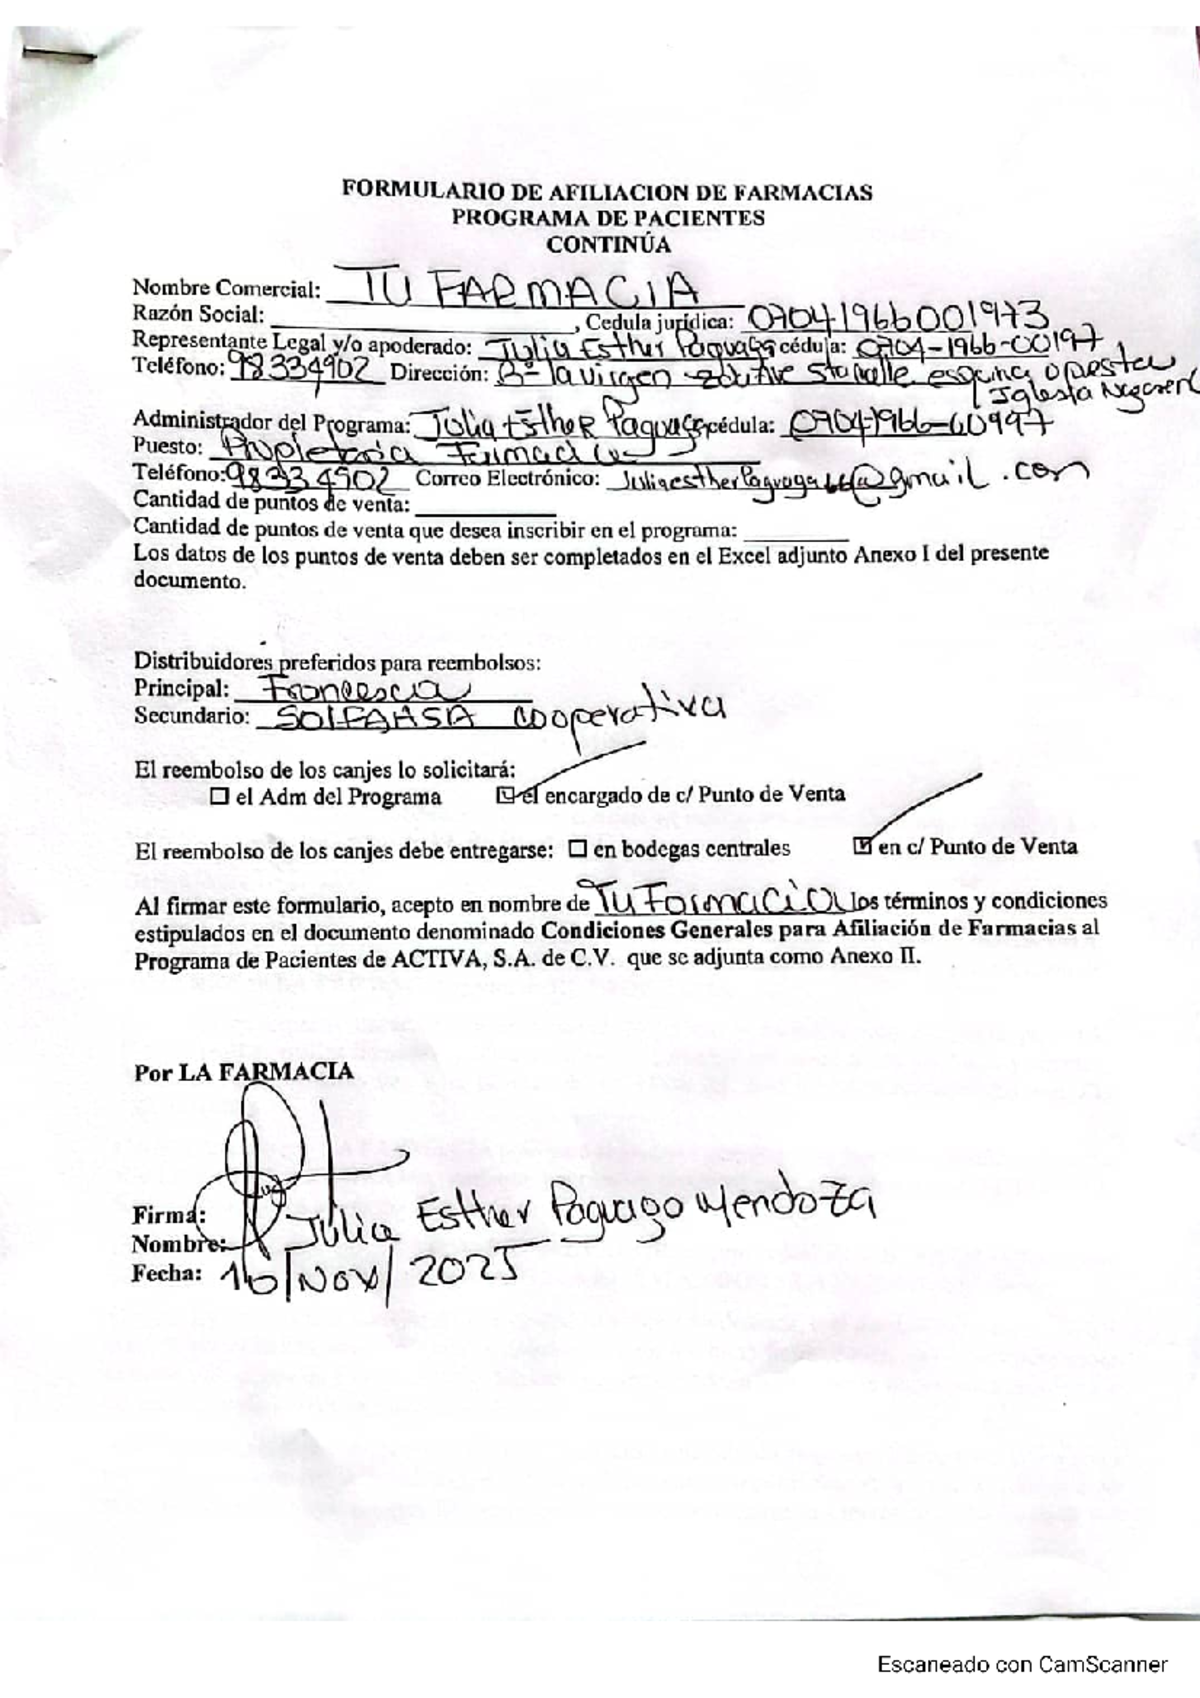 FORMULARIO DE AFILIACION DE FARMACIAS
PROGRAMA DE PACIENTES
CONTINÚA
Nombre Comercial: TU FARMACIA
Razón Social: ____________, Cedula jurídica: 07041966001973
Representante Legal y/o apoderado: Julia Esther Paguaga cédula: 0704-1966-00197
Teléfono: 98334902 Dirección: Bº la virgen esquina opuesta
Iglesia
Administrador del Programa: Julia Esther Paguaga cédula:
Puesto: Propietaria Farmacia
Teléfono: 98334902 Correo Electrónico: @gmail.com
Cantidad de puntos de venta: ____________
Cantidad de puntos de venta que desea inscribir en el programa: _________
Los datos de los puntos de venta deben ser completados en el Excel adjunto Anexo I del presente
documento.
Distribuidores preferidos para reembolsos:
Principal: Francescia
Secundario: SOLFAHSA cooperativa
El reembolso de los canjes lo solicitará:
☐ el Adm del Programa ☑ el encargado de c/ Punto de Venta
El reembolso de los canjes debe entregarse: ☐ en bodegas centrales ☑ en c/ Punto de Venta
Al firmar este formulario, acepto en nombre de Tu Farmacia los términos y condiciones
estipulados en el documento denominado Condiciones Generales para Afiliación de Farmacias al
Programa de Pacientes de ACTIVA, S.A. de C.V. que se adjunta como Anexo II.
Por LA FARMACIA
Firma:
Nombre: Julia Esther Paguago Mendoza
Fecha: 16/Nov/2025
Escaneado con CamScanner